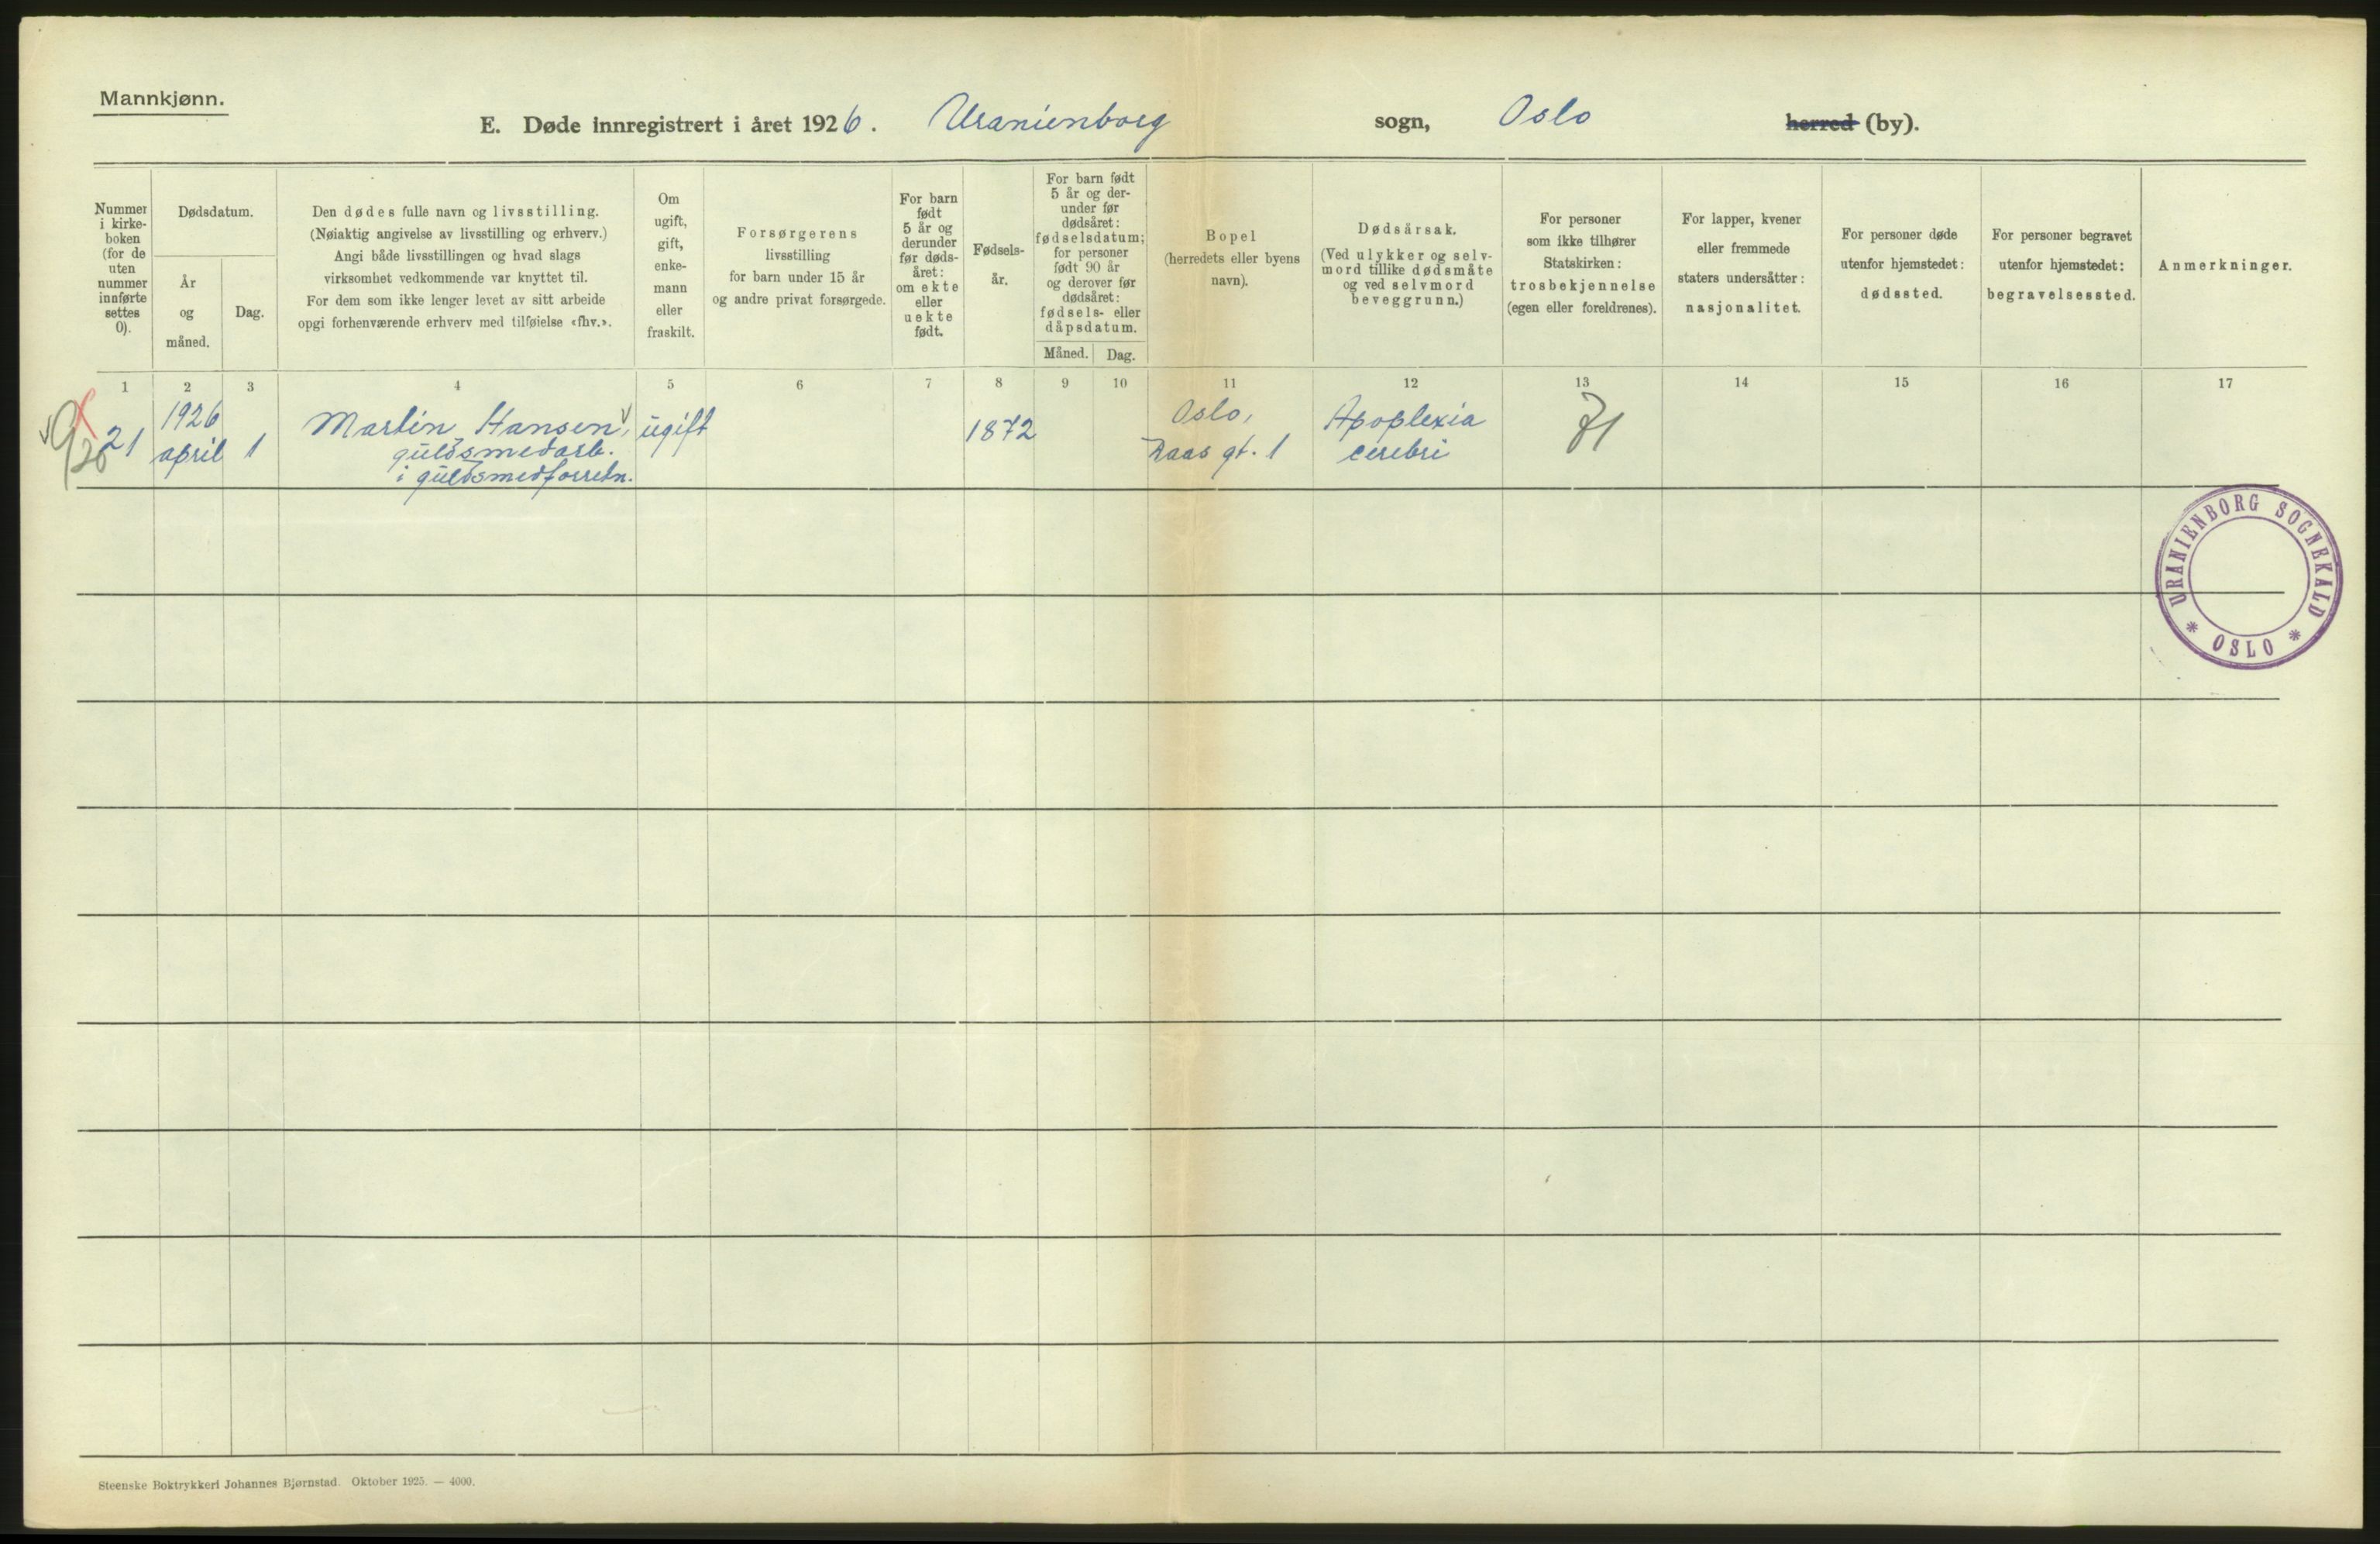 Mannkjønn.
E. Døde innregistrert i året 1926. Uranienborg sogn, Oslo herred (by).
Nummer
i kirke-
boken
(for de
uten
nummer
innførte
settes
0).
Dødsdatum.
År
og
måned.
Dag.
Den dødes fulle navn og livsstilling.
(Nøiaktig angivelse av livsstilling og erhverv.)
Angi både livsstillingen og hvad slags
virksomhet vedkommende var knyttet til.
For dem som ikke lenger levet av sitt arbeide
opgi forhenværende erhverv med tilføielse «fhv.».
Om
ugift,
gift,
enke-
mann
eller
fraskilt.
Forsørgerens
livsstilling
for barn under 15 år
og andre privat forsørgede.
For barn
født
5 år og
derunder
før døds-
året:
om ekte
eller
uekte
født.
Fødsels-
år.
For barn født
5 år og der-
under før
dødsåret:
fødselsdatum;
for personer
født 90 år
og derover før
dødsåret:
fødsels- eller
dåpsdatum.
Måned. Dag.
Bopel
(herredets eller byens
navn).
Dødsårsak.
(Ved ulykker og selv-
mord tillike dødsmåte
og ved selvmord
beveggrunn.)
For personer
som ikke tilhører
Statskirken:
trosbekjennelse
(egen eller foreldrenes).
For lapper, kvener
eller fremmede
staters undersåtter:
nasjonalitet.
For personer døde
utenfor hjemstedet:
dødssted.
For personer begravet
utenfor hjemstedet:
begravelsessted.
Anmerkninger.
1 2 3 4 5 6 7 8 9 10 11 12 13 14 15 16 17
21
1926
april
1
Martin Hansen,
guldsmedarb.
i guldsmedforretn.
ugift
1872
Oslo,
Daas gt. 1
Apoplexia
cerebri
71
URANIENBORG SOGNEKALD
* OSLO *
Steenske Boktrykkeri Johannes Bjørnstad. Oktober 1925. — 4000.